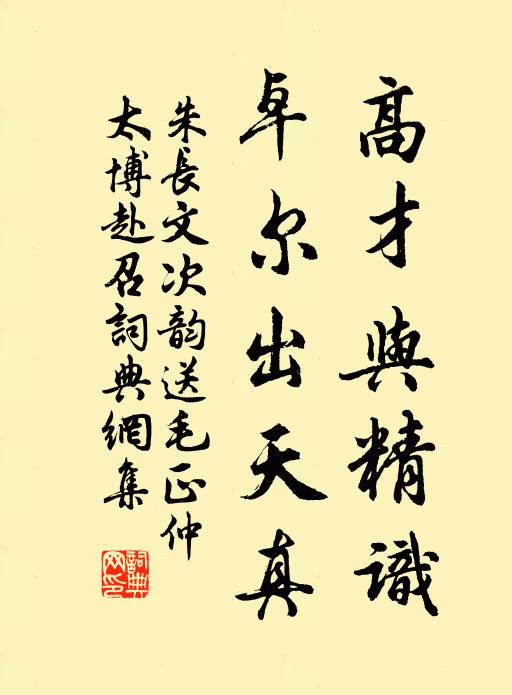 高才與精識
卓尔出天真
朱長文次韵送毛正仲
太博赴召詞典網集
詞典
网印